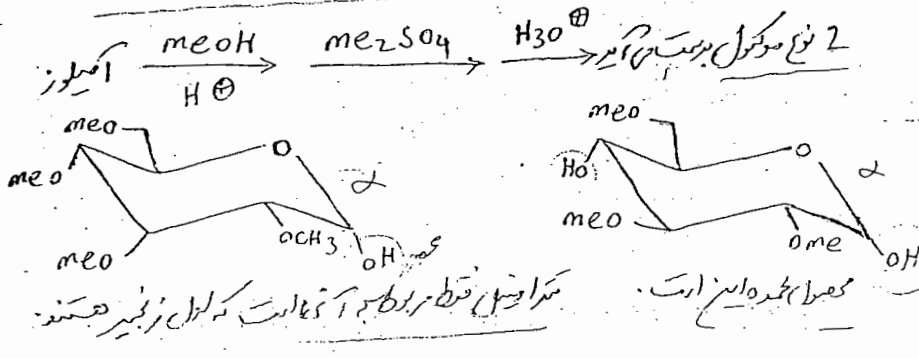 آمیلوز meOH H⊕ me2SO4 H3O⊕ 2 نوع مولکول بدست می آید
meo meo meo O OCH3 OH α
meo Ho meo O ome OH α
تترا متیل فقط مربوط به آنهایی است که اول زنجیر هستند.
محصول عمده این است.